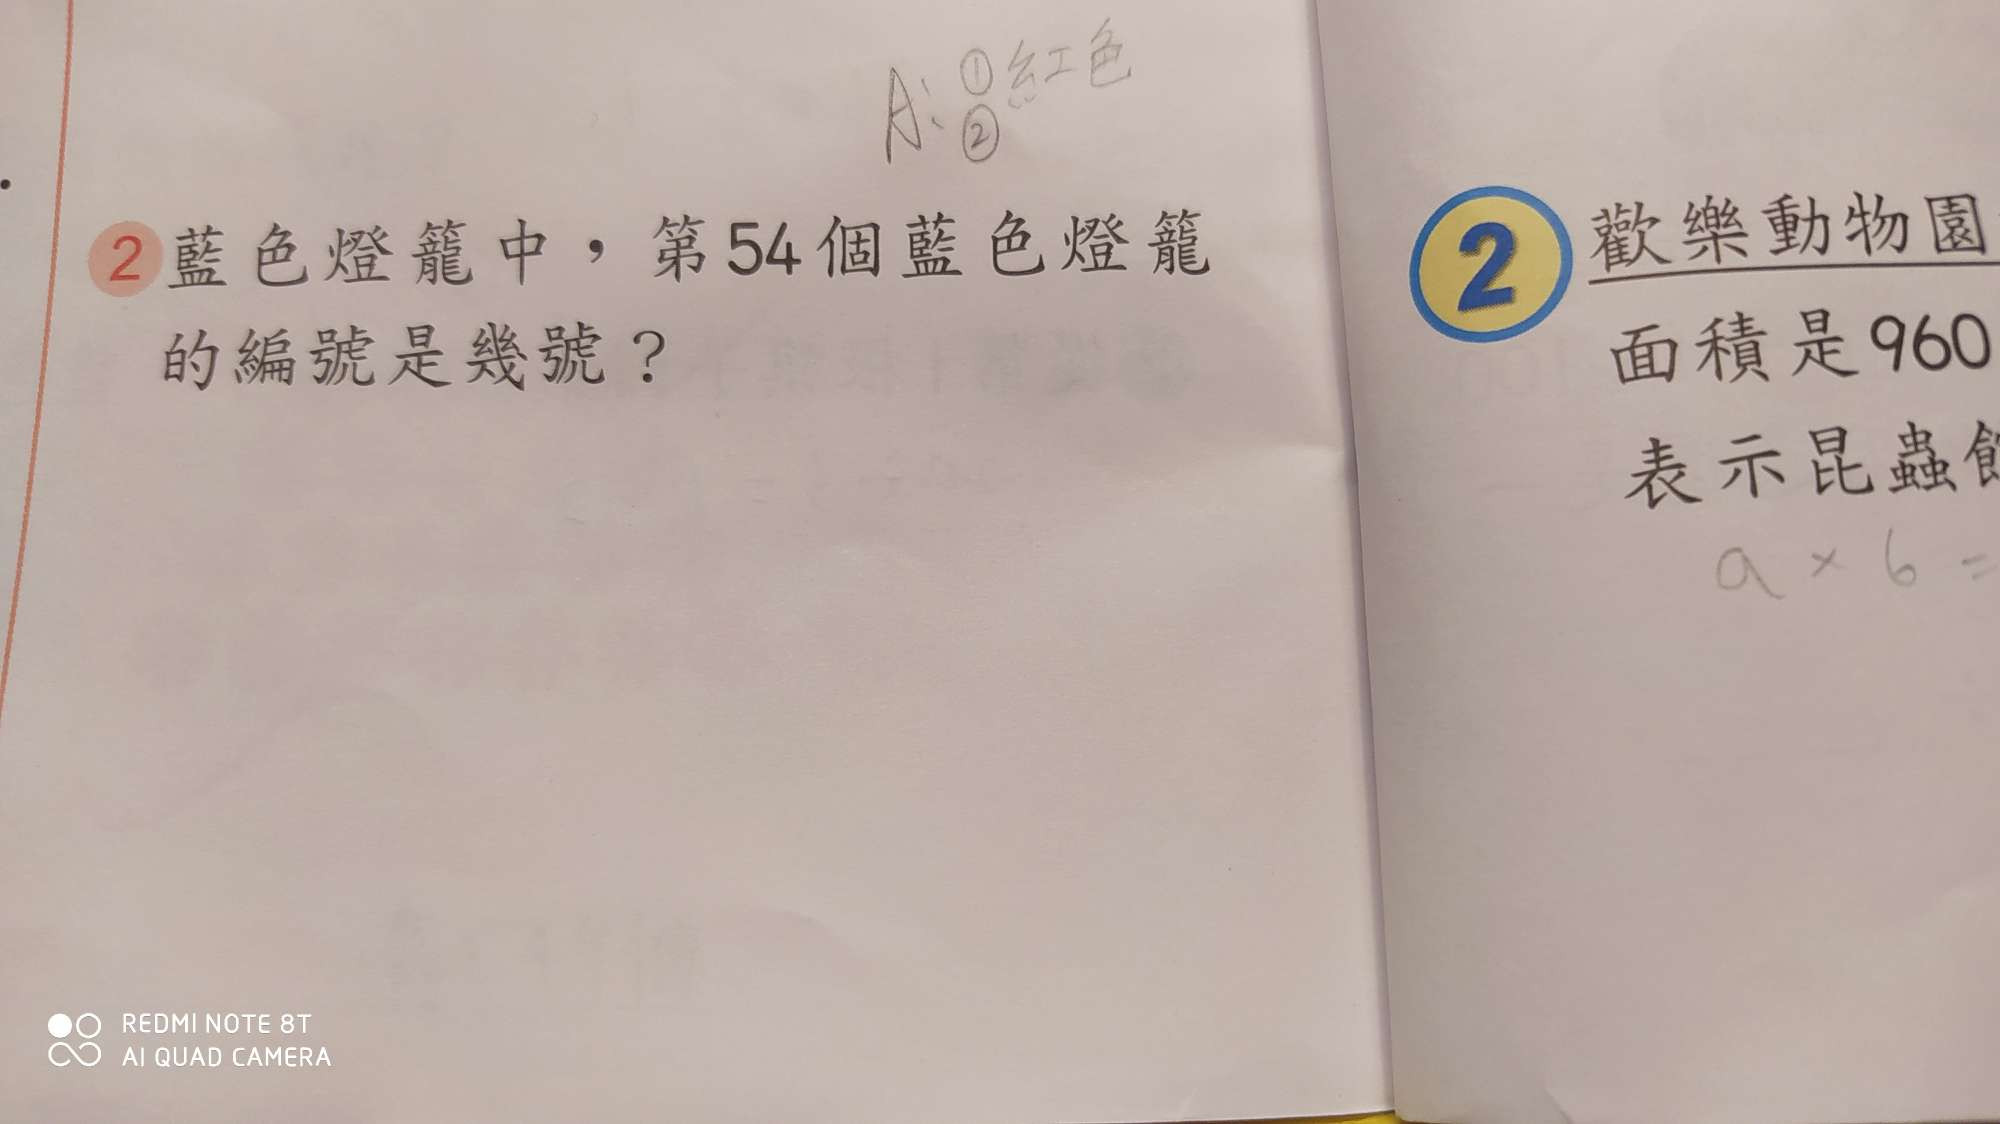 A: ①紅色
②
2 藍色燈籠中，第54個藍色燈籠
的編號是幾號？
2 歡樂動物園
面積是960
表示昆蟲館
a × 6 =
REDMI NOTE 8T
AI QUAD CAMERA